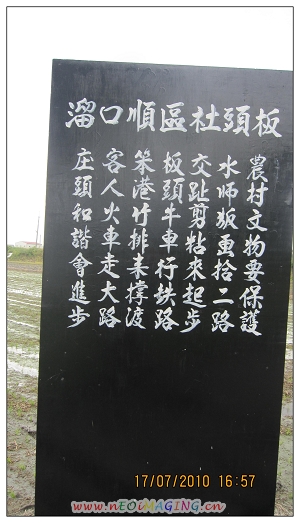 板頭社區順口溜
農村文物要保護
水师 拾二路
交趾剪粘來起步
板頭牛車行鉄路
笨港竹排来撐渡
客人火車走大路
庄頭和諧會進步
17/07/2010 16:57
www.nEOiMAGING.cn